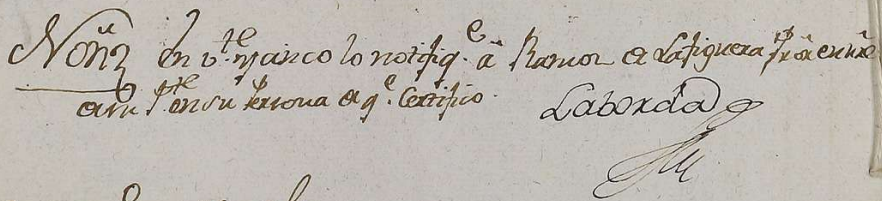 Noñ en v.te y cinco lo notifiq.e â Ramon de Lafiguera Pror en nre
de su P.te en su Persona de q.e Certifico.
Laborda